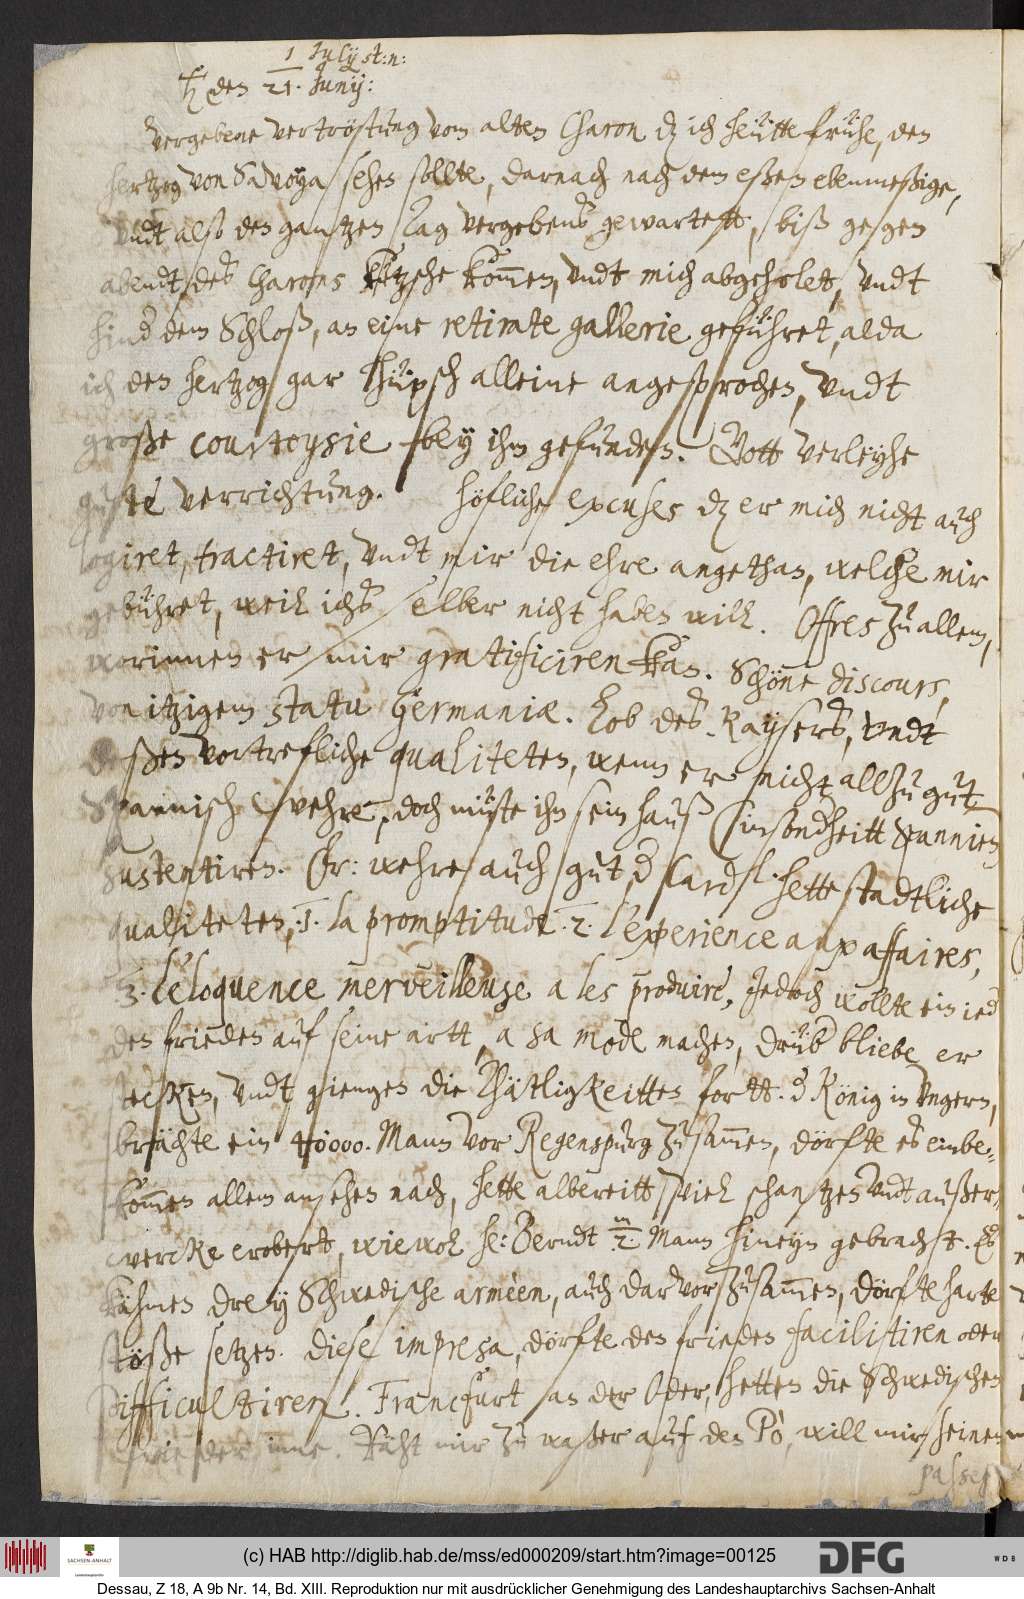 1 Julÿ st: n:
♄ den 21. Junij:
Vergebene vertröstung vom alten Charon dz ich heütte frühe, den
hertzog von Savoya sehen sollte, darnach nach dem eßen ebenmeßige,
Vndt also den gantzen Tag vergebens gewartett, biß gegen
abendt des Charons kützsche kommen, vndt mich abgeholet, vndt
hind dem Schloß, an eine retirate gallerie geführet, alda
ich den hertzog gar hüpsch alleine angesprochen, vndt
große courtoysie bey ihm gefunden. Gott verleyhe
gute verrichtung. Höfliche excuses dz er mich nicht auch
logiret, tractiret, vndt mir die ehre angethan, welche mir
gebühret, weil ichs selber nicht haben will. Offres zu allem,
worinnen er mir gratificiren kan. Schöne discours,
von itzigem statu Germaniæ. Lob des Kaysers, vndt
deßen vortrefliche qualiteten, wenn er nicht allzu gut
Spannisch wehre, doch müste ihn sein hauß (insonderheitt Spannien)
sustentiren. Er: wehre auch gut, d Cardl. hette stadtliche
qualiteten, .1. la promptitude .2. l'experience aux affaires,
.3. l'eloquence merveilleuse a les produire, Jedoch wollte ein ied
den frieden auf seine artt, a sa mode machen, drüb bliebe er
stecken, vndt giengen die Thätligkeitten fortt. d König in Vngern,
brächte ein 40000. Mann vor Regenspurg zusammen, dörfte es einbe-
kommen allem ansehen nach, hette albereitt viel schantzen vndt außer-
wercke erobert, wiewol he: Berndt m/2. Mann hineyn gebracht. Es
kähmen dreÿ Schwedische armèen, auch darvor zusammen, dörfte harte
stöße setzen. Diese impresa, dörfte den frieden facilitiren oder
difficultiren. Francfurt an der Oder, hetten die Schwedischen
wieder inne. Räht mir zu waßer auf den Pò, will mir seinen
passep
(c) HAB http://diglib.hab.de/mss/ed000209/start.htm?image=00125
SACHSEN-ANHALT
DFG
WDB
Dessau, Z 18, A 9b Nr. 14, Bd. XIII. Reproduktion nur mit ausdrücklicher Genehmigung des Landeshauptarchivs Sachsen-Anhalt